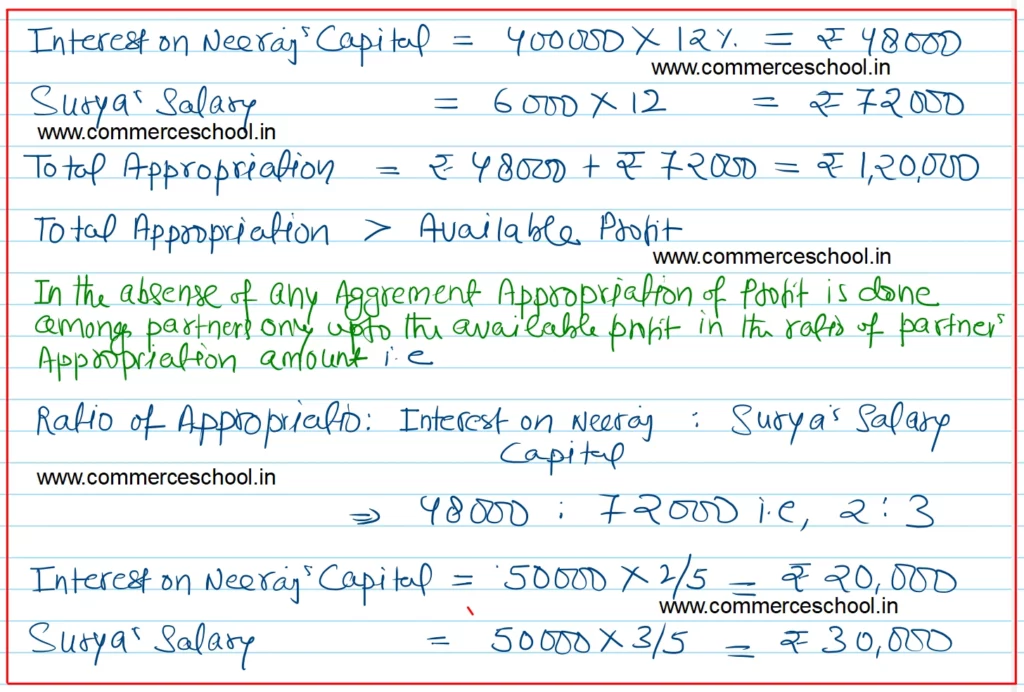 Interest on Neeraj's Capital = 400000 X 12 % = ₹ 48000
www.commerceschool.in
Surya's Salary = 6000 X 12 = ₹ 72000
www.commerceschool.in
Total Appropriation = ₹ 48000 + ₹ 72000 = ₹ 1,20,000
Total Appropriation > Available Profit
www.commerceschool.in
In the absense of any Aggrement Appropriation of Profit is done
among partners only upto the available profit in the ratio of partner's
Appropriation amount i.e
Ratio of Appropriatio: Interest on Neeraj : Surya's Salary
Capital
www.commerceschool.in
⇒ 48000 : 72000 i.e, 2 : 3
Interest on Neeraj's Capital = 50000 X 2/5 = ₹ 20,000
www.commerceschool.in
Surya's Salary = 50000 X 3/5 = ₹ 30,000